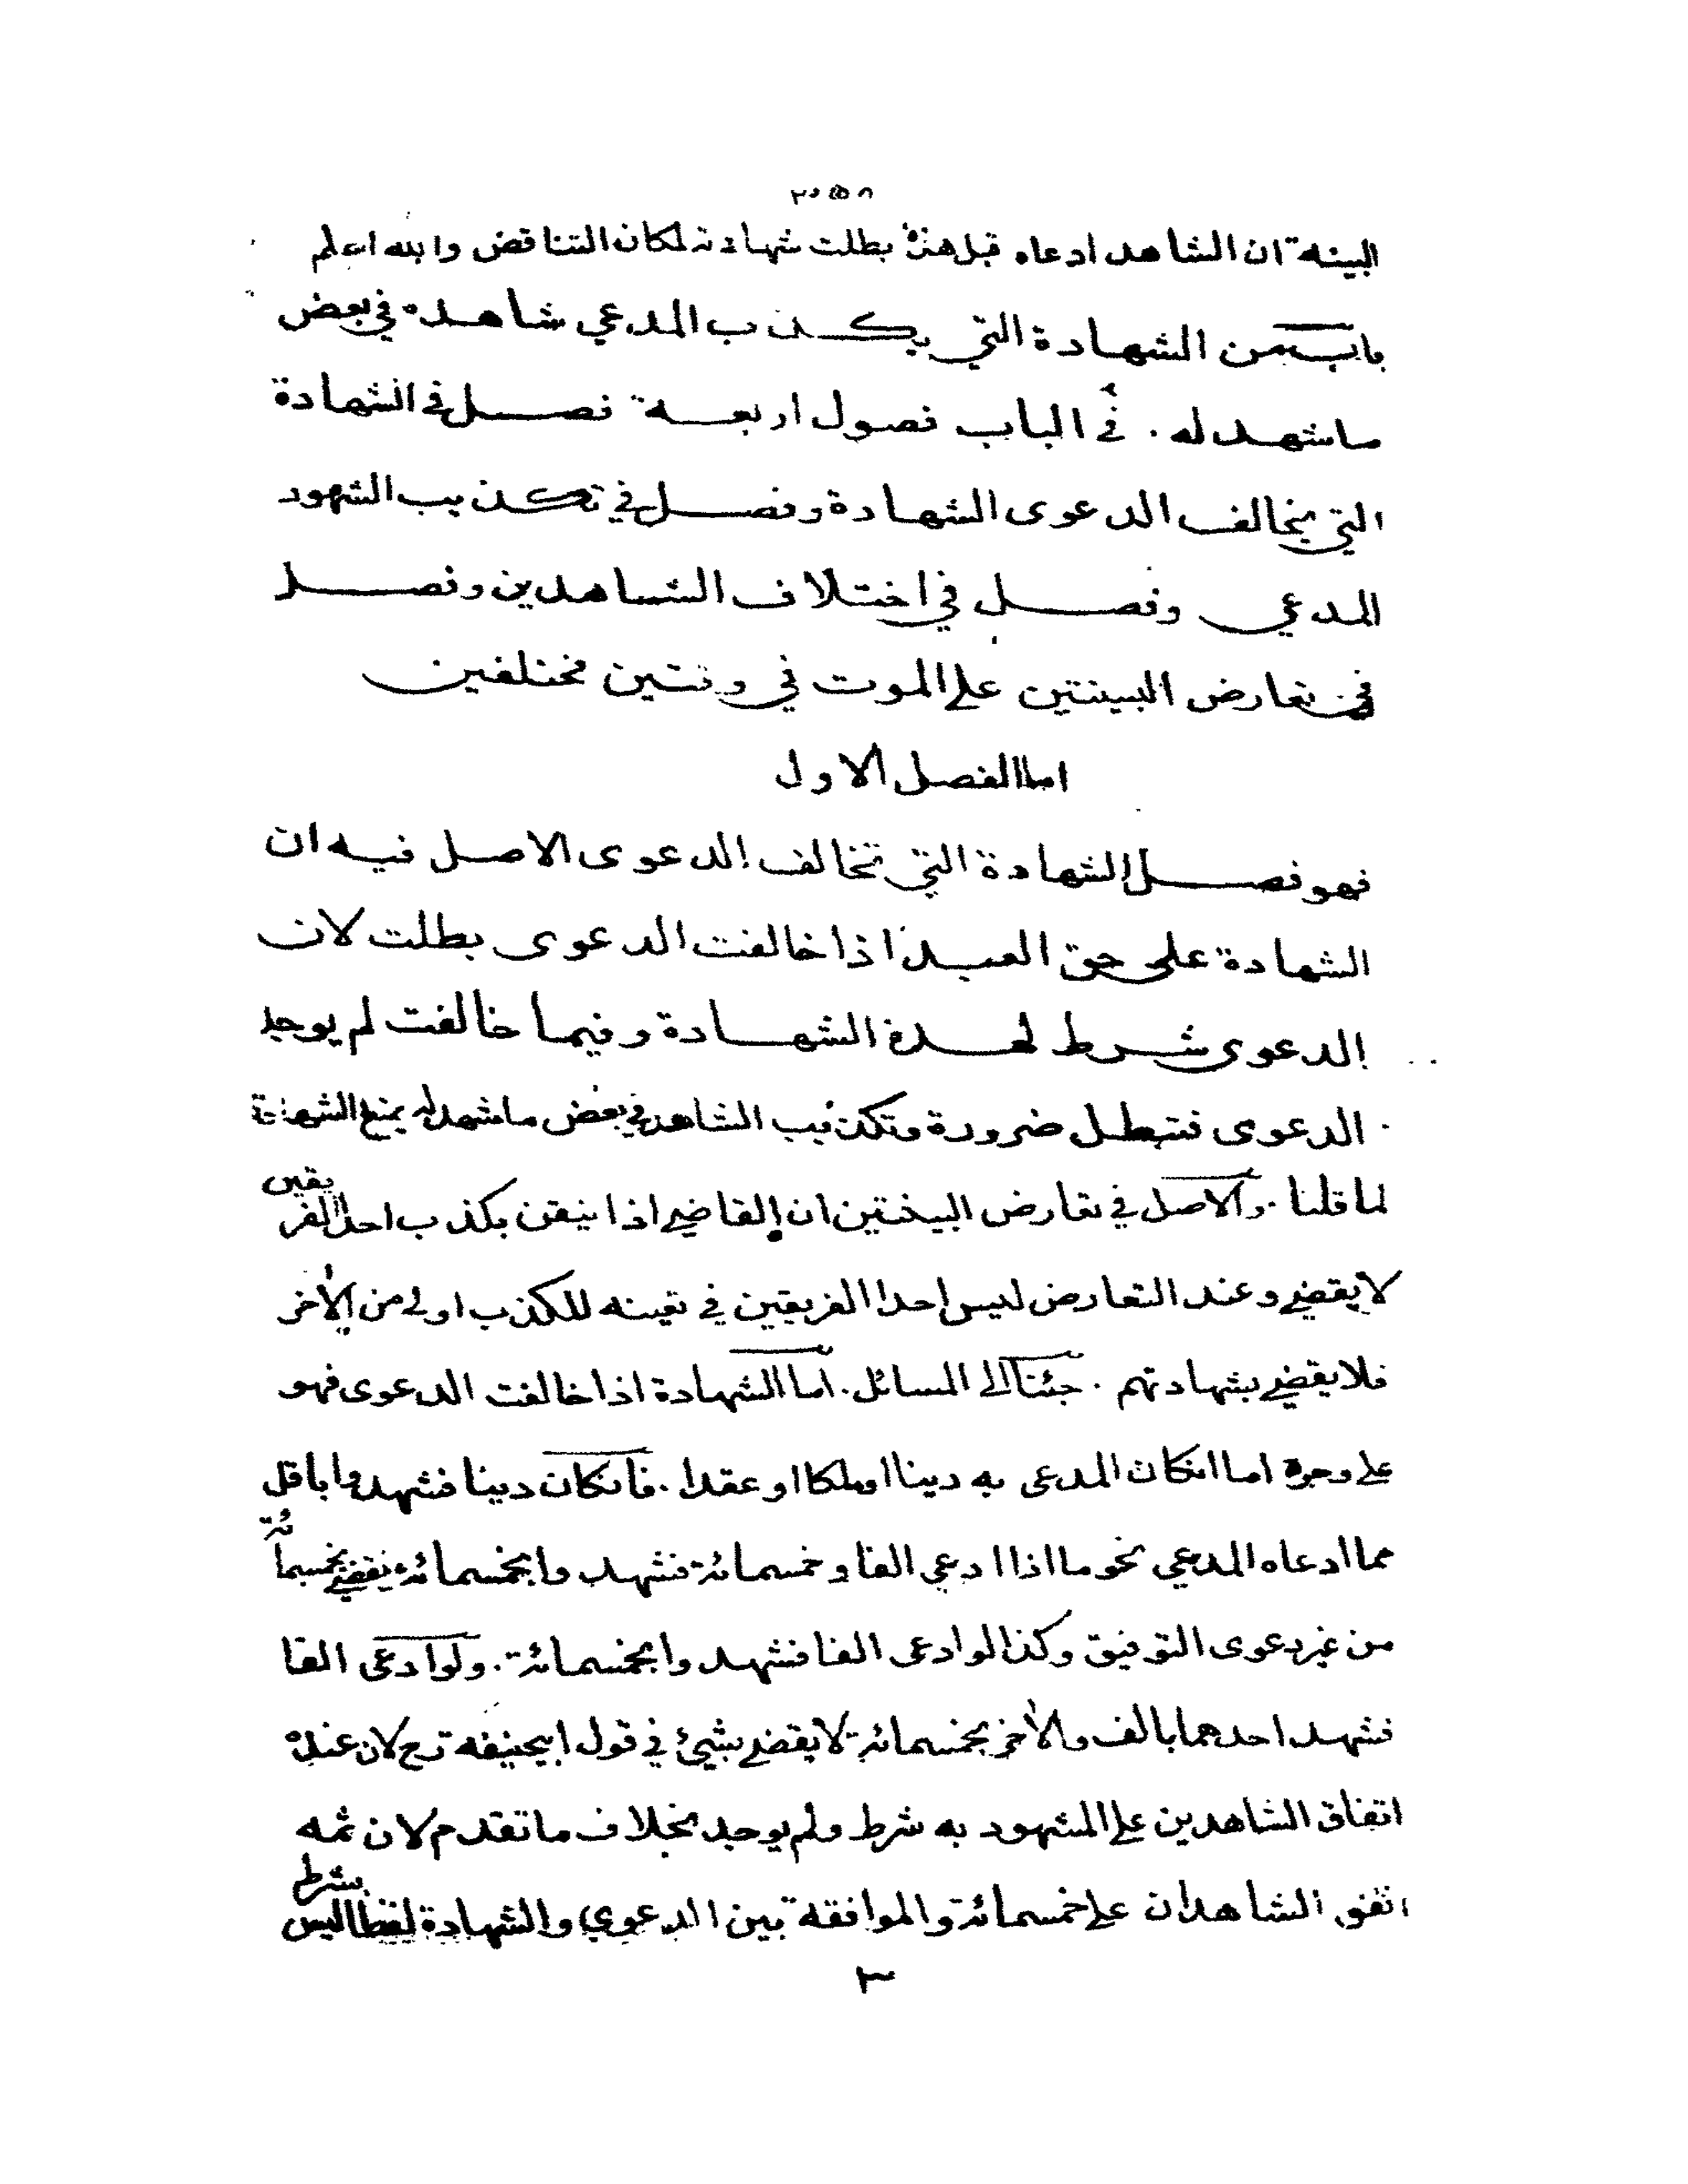 البينة ان الشاهد ادعاه قبل هذه بطلت شهادته لمكان التناقض والله اعلم
باب من الشهادة التي يكذب المدعي شاهده في بعض
ما شهد له . في الباب فصول اربعة فصل في الشهادة
التي يخالف الدعوى الشهادة وفصل في تكذيب الشهود
المدعي وفصل في اختلاف الشاهدين وفصل
في تعارض البينتين على الموت في وقتين مختلفين
اما الفصل الاول
فهو فصل الشهادة التي تخالف الدعوى الاصل فيه ان
الشهادة على حق العبد اذا خالفت الدعوى بطلت لان
الدعوى شرط لهذه الشهادة وفيما خالفت لم يوجد
الدعوى فتبطل ضرورة وتكذيب الشاهد في بعض ما شهد له يمنع الشهادة
لما قلنا . والاصل في تعارض البينتين ان القاضي اذا تيقن بكذب احد الفريقين
لا يقضي وعند التعارض ليس احدا الفريقين في تعينه للكذب اولى من الآخر
فلا يقضي بشهادتهم . جئنا الى المسائل . اما الشهادة اذا خالفت الدعوى فهو
على وجوه اما انكان المدعى به دينا او ملكا او عقدا . فانكان دينا فشهدوا باقل
مما ادعاه المدعي نحو ما اذا ادعي الفا وخمسمائة فشهدوا بخمسمائة يقضي بخمسمائة
من غير دعوى التوفيق وكذا لو ادعى الفا فشهدوا بخمسمائة . ولو ادعى الفا
فشهد احدهما بالف والآخر بخمسمائة لا يقضي بشيئ في قول ابيحنيفه رح لان عنده
اتفاق الشاهدين على المشهود به شرط ولم يوجد بخلاف ما تقدم لان ثمه
اتفق الشاهدان على خمسمائة والموافقة بين الدعوي والشهادة لفظا ليس بشرط